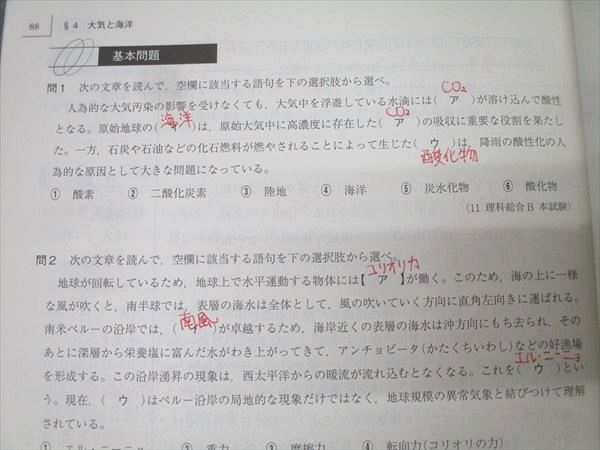 88 §4 大気と海洋
基本問題
問1 次の文章を読んで，空欄に該当する語句を下の選択肢から選べ。
CO₂
人為的な大気汚染の影響を受けなくても，大気中を浮遊している水滴には（ ア ）が溶け込んで酸性
海洋 CO₂
となる。原始地球の（ イ ）は，原始大気中に高濃度に存在した（ ア ）の吸収に重要な役割を果たし
た。一方，石炭や石油などの化石燃料が燃やされることによって生じた（ ウ ）は，降雨の酸性化の人
酸化物
為的な原因として大きな問題になっている。
① 酸素 ② 二酸化炭素 ③ 陸地 ④ 海洋 ⑤ 炭水化物 ⑥ 酸化物
(11 理科総合B 本試験)
問2 次の文章を読んで，空欄に該当する語句を下の選択肢から選べ。
コリオリカ
地球が回転しているため，地球上で水平運動する物体には【 ア 】が働く。このため，海の上に一様
な風が吹くと，南半球では，表層の海水は全体として，風の吹いていく方向に直角左向きに運ばれる。
南風
南米ペルーの沿岸では，（ イ ）が卓越するため，海岸近くの表層の海水は沖方向にもち去られ，その
あとに深層から栄養塩に富んだ水がわき上がってきて，アンチョビータ(かたくちいわし)などの好漁場
エル・ニーニョ
を形成する。この沿岸湧昇の現象は，西太平洋からの暖流が流れ込むとなくなる。これを（ ウ ）とい
う。現在，（ ウ ）はペルー沿岸の局地的な現象だけではなく，地球規模の異常気象と結びつけて理解
されている。
① エル・ニーニョ ② 重力 ③ 摩擦力 ④ 転向力(コリオリの力)